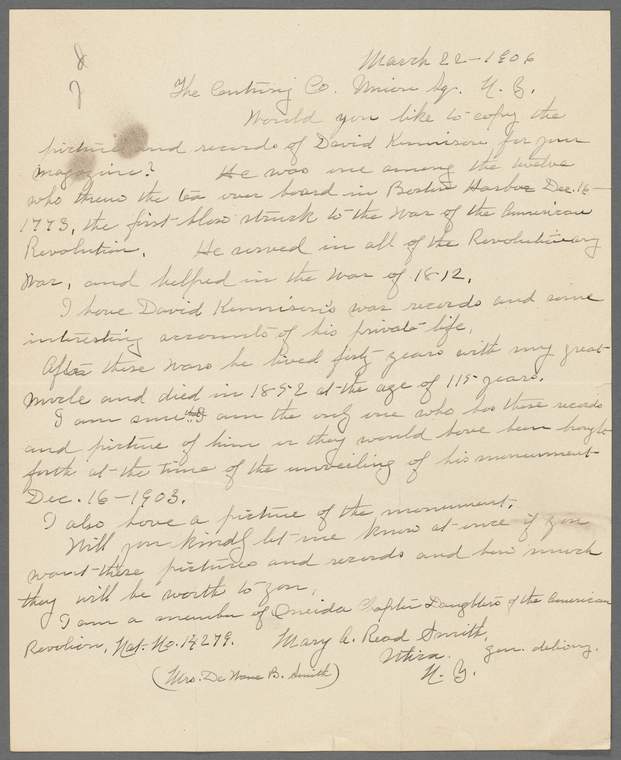 March 22-1906
The Century Co. Union Sq. N. Y.
Would you like to copy the
picture and records of David Kennison for your
magazine? He was one among the twelve
who threw the tea over board in Boston Harbor Dec. 16-
1773, the first blow struck to the War of the American
Revolution. He served in all of the Revolutionary
War, and helped in the War of 1812.
I have David Kennison's war records and some
interesting accounts of his private life.
After these wars he lived forty years with my great-
uncle and died in 1852 at the age of 115 years.
I am sure I am the only one who has these records
and picture of him or they would have been brought
forth at the time of the unveiling of his monument
Dec. 16-1903.
I also have a picture of the monument.
Will you kindly let me know at once if you
want these pictures and records and how much
they will be worth to you.
I am a member of Oneida Chapter Daughters of the American
Revolution, Nat. No.
Mary A. Read Smith,
Utica. gen. delivery.
N. Y.
(Mrs. De B. Smith)